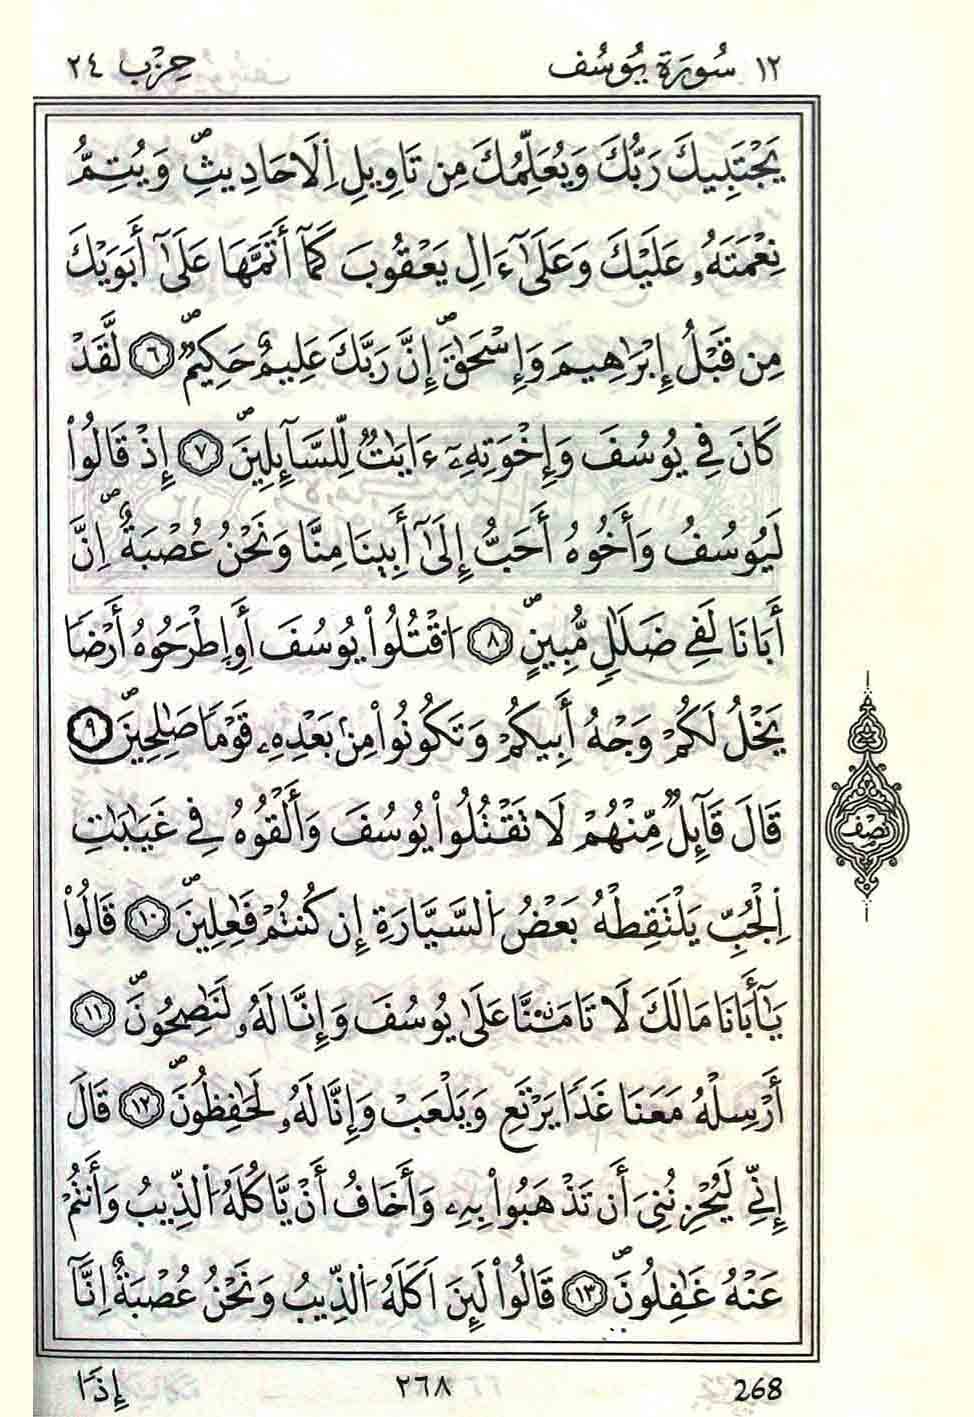 ١٢ سُورَةُ يُوسُف حِزْب ٢٤
يَجْتَبِيكَ رَبُّكَ وَيُعَلِّمُكَ مِن تَاوِيلِ اِ۬لَاحَادِيثِۖ وَيُتِمُّ
نِعْمَتَهُۥ عَلَيْكَ وَعَلَىٰٓ ءَالِ يَعْقُوبَ كَمَآ أَتَمَّهَا عَلَىٰٓ أَبَوَيْكَ
مِن قَبْلُ إِبْرَٰهِيمَ وَإِسْحَٰقَۖ إِنَّ رَبَّكَ عَلِيمٌ حَكِيمٞۖ ٦ لَّقَدْ
كَانَ فِے يُوسُفَ وَإِخْوَتِهِۦٓ ءَايَٰتٞ لِّلسَّآئِلِينَۖ ٧ إِذْ قَالُواْ
لَيُوسُفُ وَأَخُوهُ أَحَبُّ إِلَىٰٓ أَبِينَا مِنَّا وَنَحْنُ عُصْبَةٌۖ اِنَّ
أَبَانَا لَفِے ضَلَٰلٖ مُّبِينٍۖ ٨ اَ۟قْتُلُواْ يُوسُفَ أَوِ اِ۪طْرَحُوهُ أَرْضٗا
يَخْلُ لَكُمْ وَجْهُ أَبِيكُمْ وَتَكُونُواْ مِنۢ بَعْدِهِۦ قَوْمٗا صَٰلِحِينَۖ ٩
قَالَ قَآئِلٞ مِّنْهُمْ لَا تَقْتُلُواْ يُوسُفَ وَأَلْقُوهُ فِے غَيَٰبَٰتِ
اِ۬لْجُبِّ يَلْتَقِطْهُ بَعْضُ اُ۬لسَّيَّارَةِ إِن كُنتُمْ فَٰعِلِينَۖ ١٠ قَالُواْ
يَٰٓأَبَانَا مَا لَكَ لَا تَامَ۬نَّا عَلَىٰ يُوسُفَ وَإِنَّا لَهُۥ لَنَٰصِحُونَۖ ١١
أَرْسِلْهُ مَعَنَا غَداٗ يَرْتَعِ وَيَلْعَبْ وَإِنَّا لَهُۥ لَحَٰفِظُونَۖ ١٢ قَالَ
إِنِّے لَيُحْزِنُنِىَ أَن تَذْهَبُواْ بِهِۦ وَأَخَافُ أَنْ يَّاكُلَهُ اُ۬لذِّيبُ وَأَنتُمْ
عَنْهُ غَٰفِلُونَۖ ١٣ قَالُواْ لَئِنَ اَكَلَهُ اُ۬لذِّيبُ وَنَحْنُ عُصْبَةٌ اِنَّآ
نِصْف
إِذاٗ ٢٦٨ 268